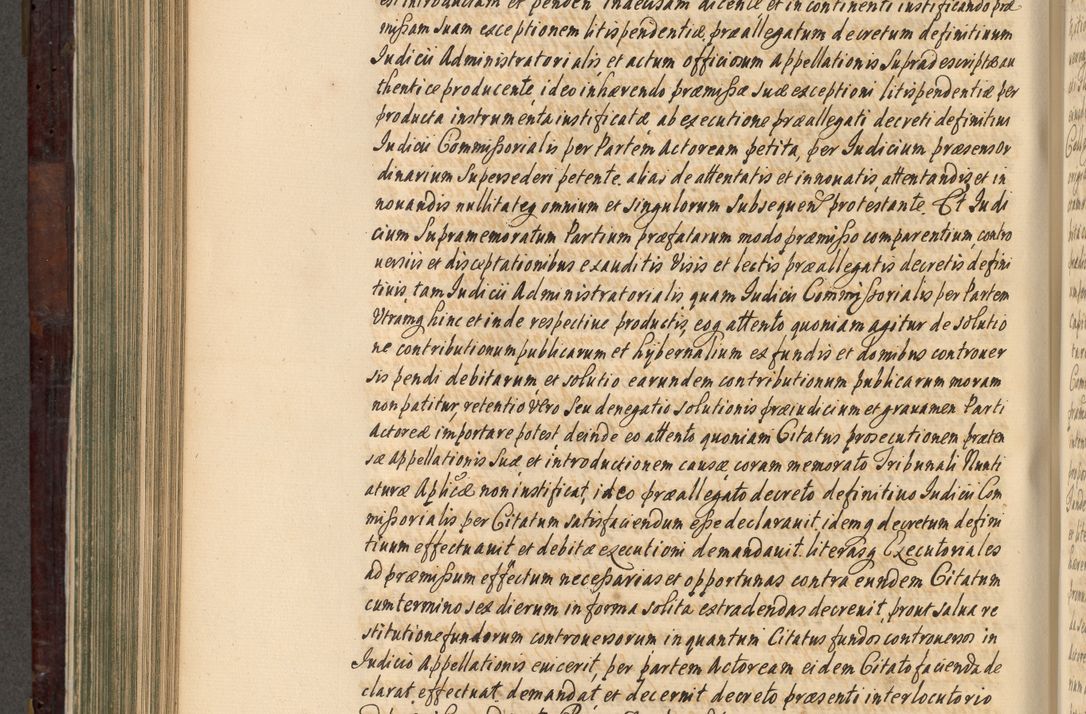 est introductam et penden indecisam dicente et in continenti iustificando præ
missam suam exceptionem litispendentiæ, præallegatum decretum definitiuum
Judicii Administratorialis et actum officiosum Appellationis supradescriptæ au
thentice producente, ideo inhærendo præmissæ suæ exceptioni litispendentiæ per
producta instrumenta iustificatæ ab executione præallegati decreti definitiui
Judicii Commissorialis per Partem Actoream petita, per Judicium præsens Or
dinarium Supersederi petente, alias de attentatis et innouatis, attentandis et in
nouandis nullitateq omnium et singulorum subsequen protestante. Et Judi
cium supramemoratum Partium præfatarum modo præmisso comparentium, contro
uersiis et disceptationibus exauditis Visis et lectis præallegatis decretis defini
tiuis, tam Judicii Administratorialis quam Judicii Commissorialis per Partem
Vtramq hinc et inde respectiue productis, eoq attento quoniam agitur de solutio
ne contributionum publicarum et hybernalium ex fundis et domibus controuer
sis pendi debitarum, et solutio earundem contributionum publicarum moram
non patitur, retentio Vero seu denegatio solutionis præiudicium et grauamen Parti
Actoreæ importare potest deinde eo attento quoniam Citatus prosecutionem præten
sæ appellationis suæ et introductionem causæ coram memorato Tribunali Nunti
aturæ Aplicæ non iustificat, ideo præallegato decreto definitiuo Judicii Com
missorialis per Citatum satisfaciendum esse declarauit, idemq decretum defini
tiuum effectuauit et debitæ executioni demandauit. literasq Executoriales
ad præmissum effectum necessarias et opportunas contra eundem Citatum
cum termino sex dierum in forma solita extradendas decreuit, prout salua re
stitutione fundorum controuersorum in quantum Citatus fundos controuersos in
Judicio Appellationis euicerit, per partem Actoream eidem Citato facienda de
clarat, effectuat, demandat, et decernit decreto præsenti interlocutorio